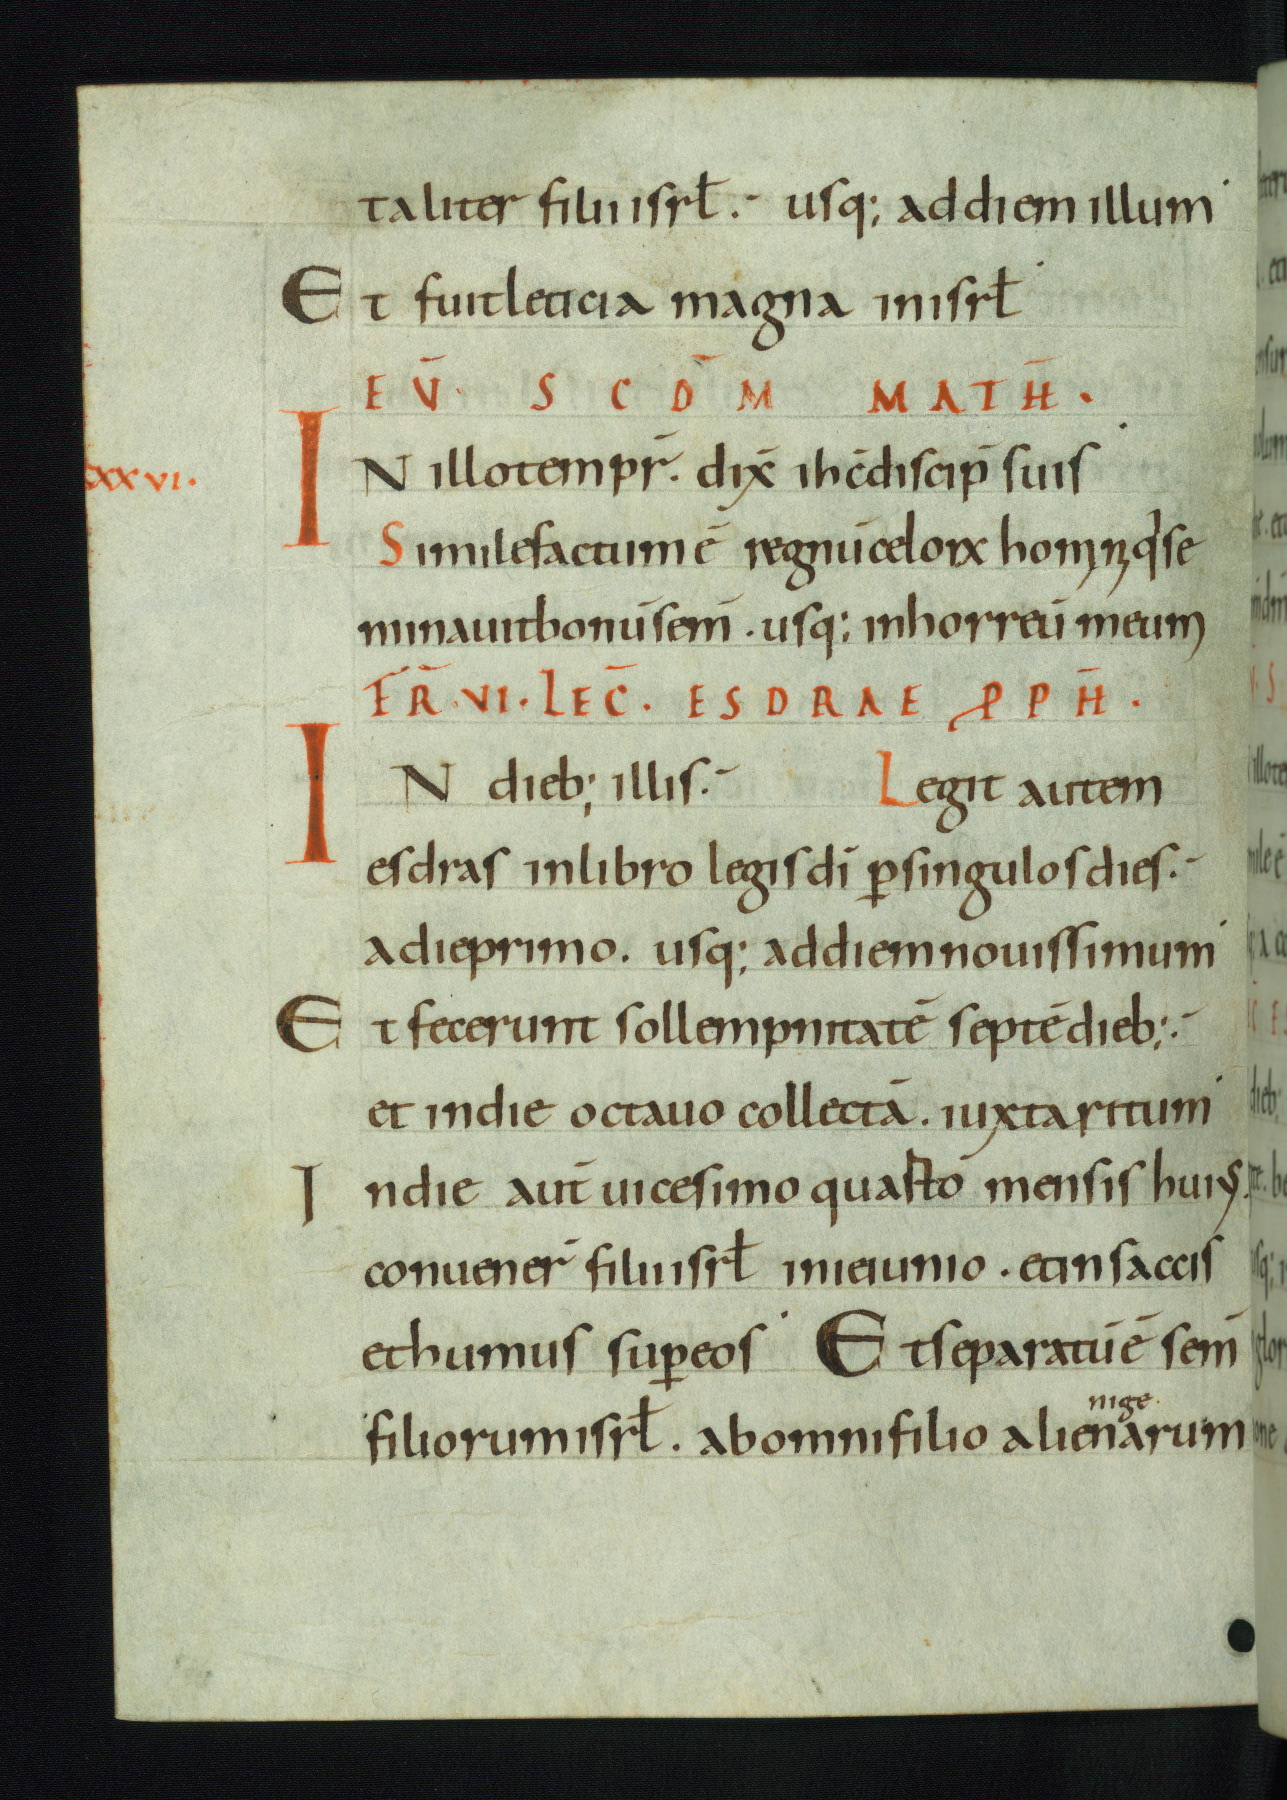 taliter filii isrł. usq; ad diem illum
Et fuit leticia magna in isrł
EV̄. SCDM̄ MATH̄.
xxvi. IN illo tempr̄. dix̄ ihc̄ discip̄ suis
Simile factum ē regnū celorꝝ homini q se
minauit bonū sem̄. usq; in horreū meum
FR̄. VI. LEC̄. ESDRAE PPH̄.
IN dieb; illis. Legit autem
esdras in libro legis dī ꝑ singulos dies.
a die primo. usq; ad diem nouissimum
Et fecerunt sollempnitatē septē dieb;.
et in die octauo collectā. iuxta ritum
In die aut̄ uicesimo quarto mensis huiꝰ.
conuener̄ filii isrł in ieiunio. et in saccis
et humus suꝑ eos Et separatū ē sem̄
filiorum isrł. ab omni filio alienarum
nige